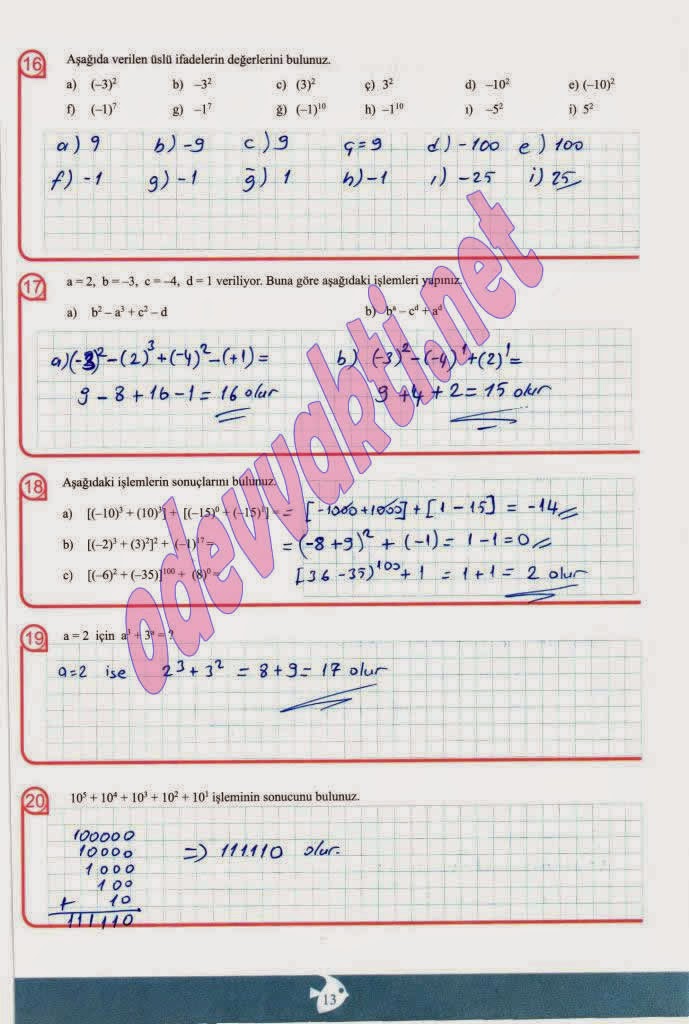 16 Aşağıda verilen üslü ifadelerin değerlerini bulunuz.
a) (–3)² b) –3² c) (3)² ç) 3² d) –10² e) (–10)²
f) (–1)⁷ g) –1⁷ ğ) (–1)¹⁰ h) –1¹⁰ ı) –5² i) 5²
a) 9 b) -9 c) 9 ç = 9 d) -100 e) 100
f) -1 g) -1 ğ) 1 h) -1 ı) -25 i) 25
17 a = 2, b = –3, c = –4, d = 1 veriliyor. Buna göre aşağıdaki işlemleri yapınız.
a) b² – a³ + c² – d b) bᵃ – cᵈ + aᵈ
a) (-3)² - (2)³ + (-4)² - (+1) = b) (-3)² - (-4)¹ + (2)¹ =
9 - 8 + 16 - 1 = 16 olur 9 + 4 + 2 = 15 olur
18 Aşağıdaki işlemlerin sonuçlarını bulunuz.
a) [(–10)³ + (10)³] + [(–15)⁰ + (–15)¹] = = [-1000 + 1000] + [1 - 15] = -14
b) [(–2)³ + (3)²]² + (–1)¹⁷ = = (-8 + 9)² + (-1) = 1 - 1 = 0
c) [(–6)² + (–35)]¹⁰⁰ + (8)⁰ = [36 - 35)¹⁰⁰ + 1 = 1 + 1 = 2 olur
19 a = 2 için a³ + 3ᵃ = ?
a = 2 ise 2³ + 3² = 8 + 9 = 17 olur
20 10⁵ + 10⁴ + 10³ + 10² + 10¹ işleminin sonucunu bulunuz.
100000
10000 => 111110 olur.
1000
100
+ 10
111110
13
odevvakti.net